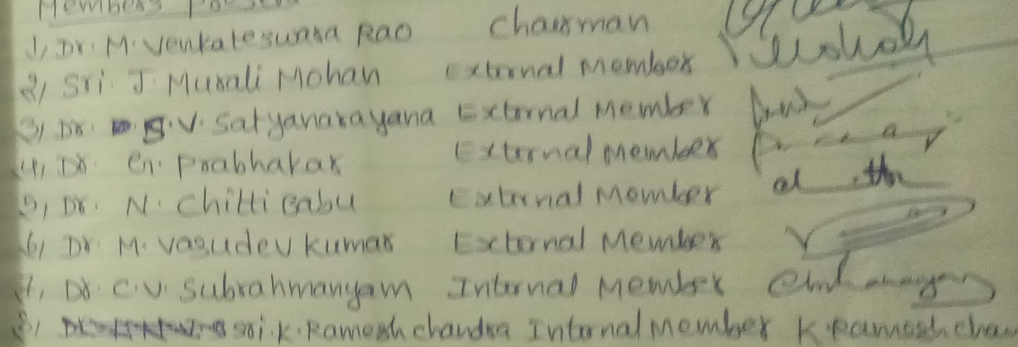 Members Present
1) Dr. M. Venkateswara Rao Chairman
2) Sri. J. Murali Mohan External Member
3) Dr. S.V. Satyanarayana External Member
4) Dr. G. Prabhakar External Member
5) Dr. N. Chitti Babu External Member
6) Dr. M. Vasudev Kumar External Member
7) Dr. C.V. Subrahmanyam Internal Member
8) Sri. K. Ramesh Chandra Internal Member K. Ramesh Chan